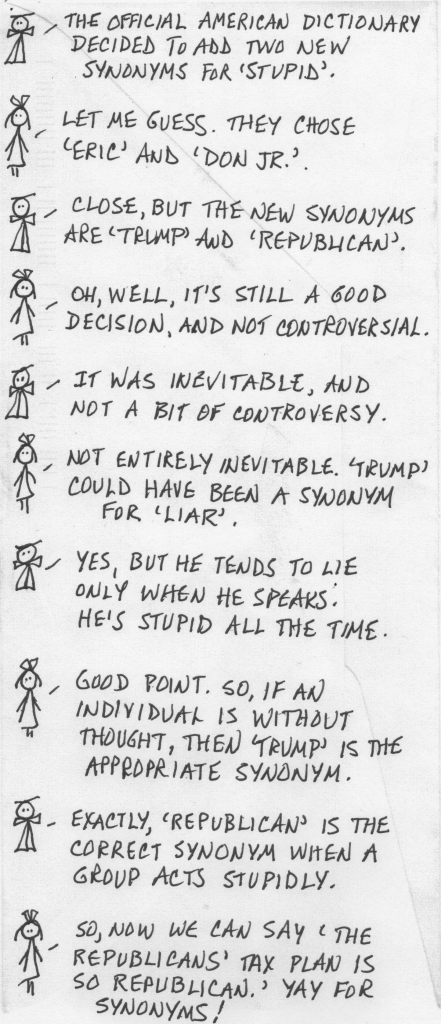 THE OFFICIAL AMERICAN DICTIONARY
DECIDED TO ADD TWO NEW
SYNONYMS FOR 'STUPID'.
LET ME GUESS. THEY CHOSE
'ERIC' AND 'DON JR.'.
CLOSE, BUT THE NEW SYNONYMS
ARE 'TRUMP' AND 'REPUBLICAN'.
OH, WELL, IT'S STILL A GOOD
DECISION, AND NOT CONTROVERSIAL.
IT WAS INEVITABLE, AND
NOT A BIT OF CONTROVERSY.
NOT ENTIRELY INEVITABLE. 'TRUMP'
COULD HAVE BEEN A SYNONYM
FOR 'LIAR'.
YES, BUT HE TENDS TO LIE
ONLY WHEN HE SPEAKS.
HE'S STUPID ALL THE TIME.
GOOD POINT. SO, IF AN
INDIVIDUAL IS WITHOUT
THOUGHT, THEN 'TRUMP' IS THE
APPROPRIATE SYNONYM.
EXACTLY, 'REPUBLICAN' IS THE
CORRECT SYNONYM WHEN A
GROUP ACTS STUPIDLY.
SO, NOW WE CAN SAY 'THE
REPUBLICANS' TAX PLAN IS
SO REPUBLICAN.' YAY FOR
SYNONYMS!